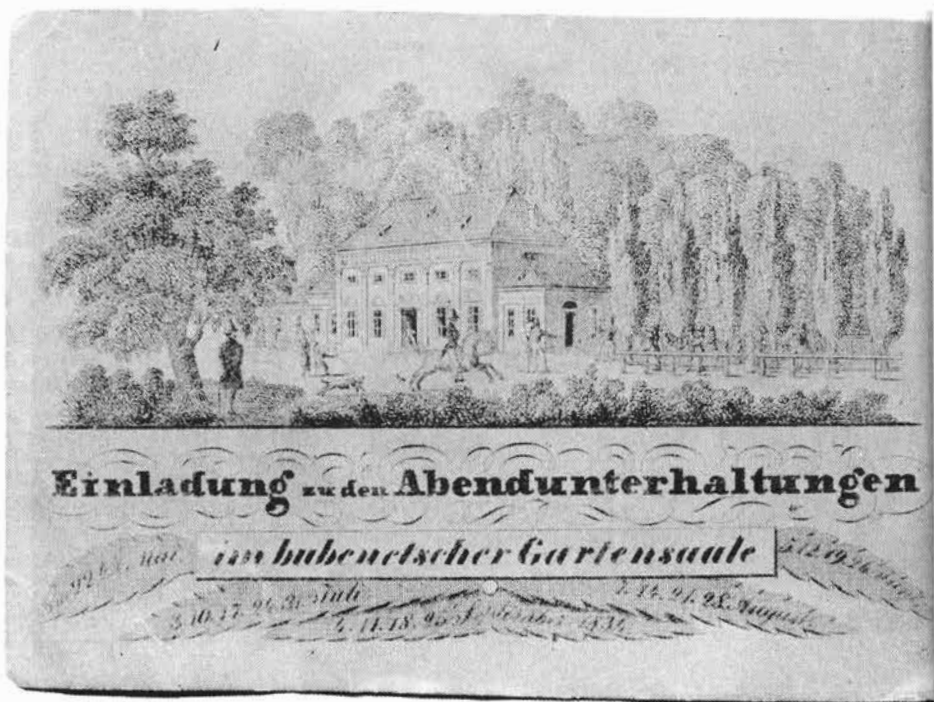 Einladung zu den Abendunterhaltungen
im bubenetscher Gartensaale
22. Mai
5. 12. 19. 26.
3. 10. 17. 24. 31. Juli
7. 14. 21. 28. August
4. 11. 18. 25. September 1834